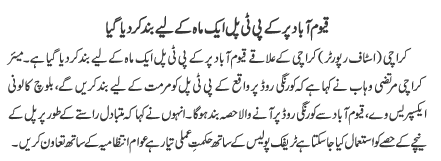 قیوم آباد پر کے پی ٹی پل ایک ماہ کے لیے بند کر دیا گیا
کراچی (اسٹاف رپورٹر) کراچی کے علاقے قیوم آباد پر کے پی ٹی پل ایک ماہ کے لیے بند کر دیا گیا ہے۔ میئر
کراچی مرتضی وہاب نے کہا ہے کہ کورنگی روڈ پر واقع کے پی ٹی پل کو مرمت کے لیے بند کریں گے، بلوچ کالونی
ایکسپریس وے، قیوم آباد سے کورنگی روڈ پر آنے والا حصہ بند ہوگا۔ انہوں نے کہا کہ متبادل راستے کے طور پر پل کے
نیچے کے حصے کو استعمال کیا جاسکتا ہے ٹریفک پولیس کے ساتھ حکمت عملی تیار ہے عوام انتظامیہ کے ساتھ تعاون کریں۔